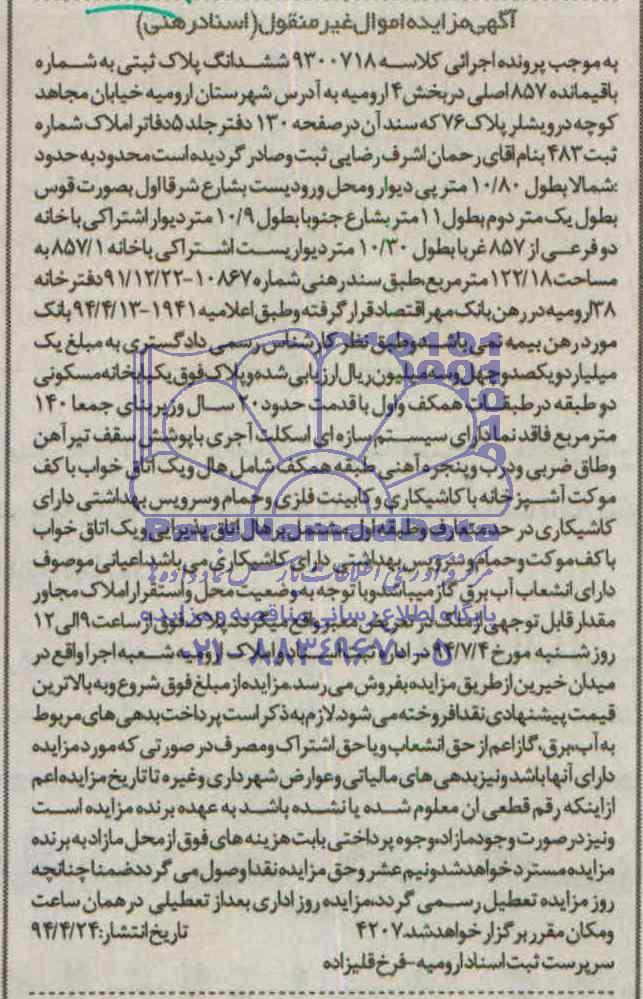 آگهی مزایده اموال غیر منقول (اسناد رهنی)
به موجب پرونده اجرائی کلاسه ۹۳۰۰۷۱۸ ششدانگ پلاک ثبتی به شماره
باقیمانده ۸۵۷ اصلی در بخش ۴ ارومیه به آدرس شهرستان ارومیه خیابان مجاهد
کوچه درویشلر پلاک ۷۶ که سند آن در صفحه ۱۳۰ دفتر جلد ۵ دفاتر املاک شماره
ثبت ۴۸۳ بنام اقای رحمان اشرف رضایی ثبت و صادر گردیده است محدود به حدود
:شمالا بطول ۱۰/۸۰ متر پی دیوار و محل ورودیست بشارع شرقا اول بصورت قوس
بطول یک متر دوم بطول ۱۱ متر بشارع جنوبا بطول ۱۰/۹ متر دیوار اشتراکی با خانه
دو فرعی از ۸۵۷ غربا بطول ۱۰/۳۰ متر دیواریست اشتراکی با خانه ۸۵۷/۱ به
مساحت ۱۲۲/۱۸ متر مربع، طبق سند رهنی شماره ۱۰۸۶۷-۹۱/۱۲/۲۲ دفتر خانه
۳۸ ارومیه در رهن بانک مهر اقتصاد قرار گرفته و طبق اعلامیه ۱۹۴۱-۹۴/۴/۱۳ بانک
مورد رهن بیمه نمی باشد. و طبق نظر کارشناس رسمی دادگستری به مبلغ یک
میلیارد و یکصد و چهل و سه میلیون ریال ارزیابی شده و پلاک فوق یکباب خانه مسکونی
دو طبقه در طبقات همکف و اول با قدمت حدود ۲۰ سال و زیربنای جمعا ۱۴۰
متر مربع فاقد نما دارای سیستم سازه ای اسکلت آجری با پوشش سقف تیر آهن
و طاق ضربی و درب و پنجره آهنی طبقه همکف شامل هال و یک اتاق خواب با کف
موکت آشپزخانه با کاشیکاری و کابینت فلزی و حمام و سرویس بهداشتی دارای
کاشیکاری در حد متعارف و طبقه اول مشتمل بر هال اتاق پذیرایی و یک اتاق خواب
با کف موکت و حمام و سرویس بهداشتی دارای کاشیکاری می باشد اعیانی موصوف
دارای انشعاب آب برق گاز میباشد و با توجه به وضعیت محل و استقرار املاک مجاور
مقدار قابل توجهی از ملک در تعریض معبر واقع میگردد. پلاک فوق از ساعت ۹ الی ۱۲
روز شنبه مورخ ۹۴/۷/۴ در اداره ثبت اسناد و املاک ارومیه شعبه اجرا واقع در
میدان خیرین از طریق مزایده بفروش می رسد. مزایده از مبلغ فوق شروع و به بالاترین
قیمت پیشنهادی نقدا فروخته می شود. لازم به ذکر است پرداخت بدهی های مربوط
به آب، برق، گاز اعم از حق انشعاب و یا حق اشتراک و مصرف در صورتی که مورد مزایده
دارای آنها باشد و نیز بدهی های مالیاتی و عوارض شهرداری و غیره تا تاریخ مزایده اعم
از اینکه رقم قطعی ان معلوم شده یا نشده باشد به عهده برنده مزایده است
و نیز در صورت وجود مازاد، وجوه پرداختی بابت هزینه های فوق از محل مازاد به برنده
مزایده مسترد خواهد شد و نیم عشر و حق مزایده نقدا وصول می گردد ضمنا چنانچه
روز مزایده تعطیل رسمی گردد، مزایده روز اداری بعد از تعطیلی در همان ساعت
و مکان مقرر برگزار خواهد شد. ۴۲۰۷ تاریخ انتشار: ۹۴/۴/۲۴
سرپرست ثبت اسناد ارومیه - فرخ قلیزاده
پایگاه اطلاع رسانی مناقصه و مزایده
۰۲۱-۸۸۳۴۹۶۷۰-۵